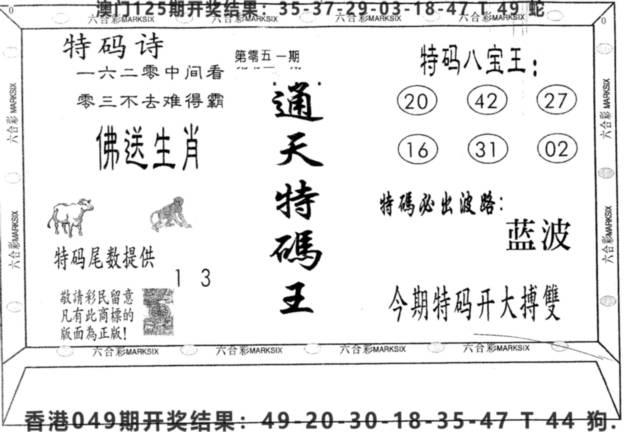 澳门125期开奖结果：35-37-29-03-18-47 T 49 蛇
六合彩MARKSIX 六合彩MARKSIX 六合彩MARKSIX 六合彩MARKSIX
特码诗
一六二零中间看
零三不去难得霸
佛送生肖
特码尾数提供
1 3
敬請彩民留意
凡有此商標的
版面為正版!
第零五一期
通天特碼王
特码八宝王：
20 42 27
16 31 02
特碼必出波路：
蓝波
今期特码开大搏雙
六合彩MARKSIX
六合彩MARKSIX
六合彩MARKSIX
六合彩MARKSIX
六合彩MARKSIX 六合彩MARKSIX 六合彩MARKSIX 六合彩MARKSIX
香港049期开奖结果：49-20-30-18-35-47 T 44 狗.